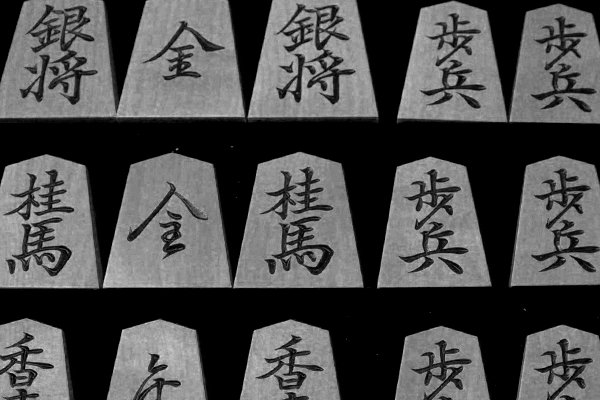 銀将 金 銀将 歩兵 歩兵
桂馬 全 桂馬 歩兵 歩兵
香 香 歩 歩